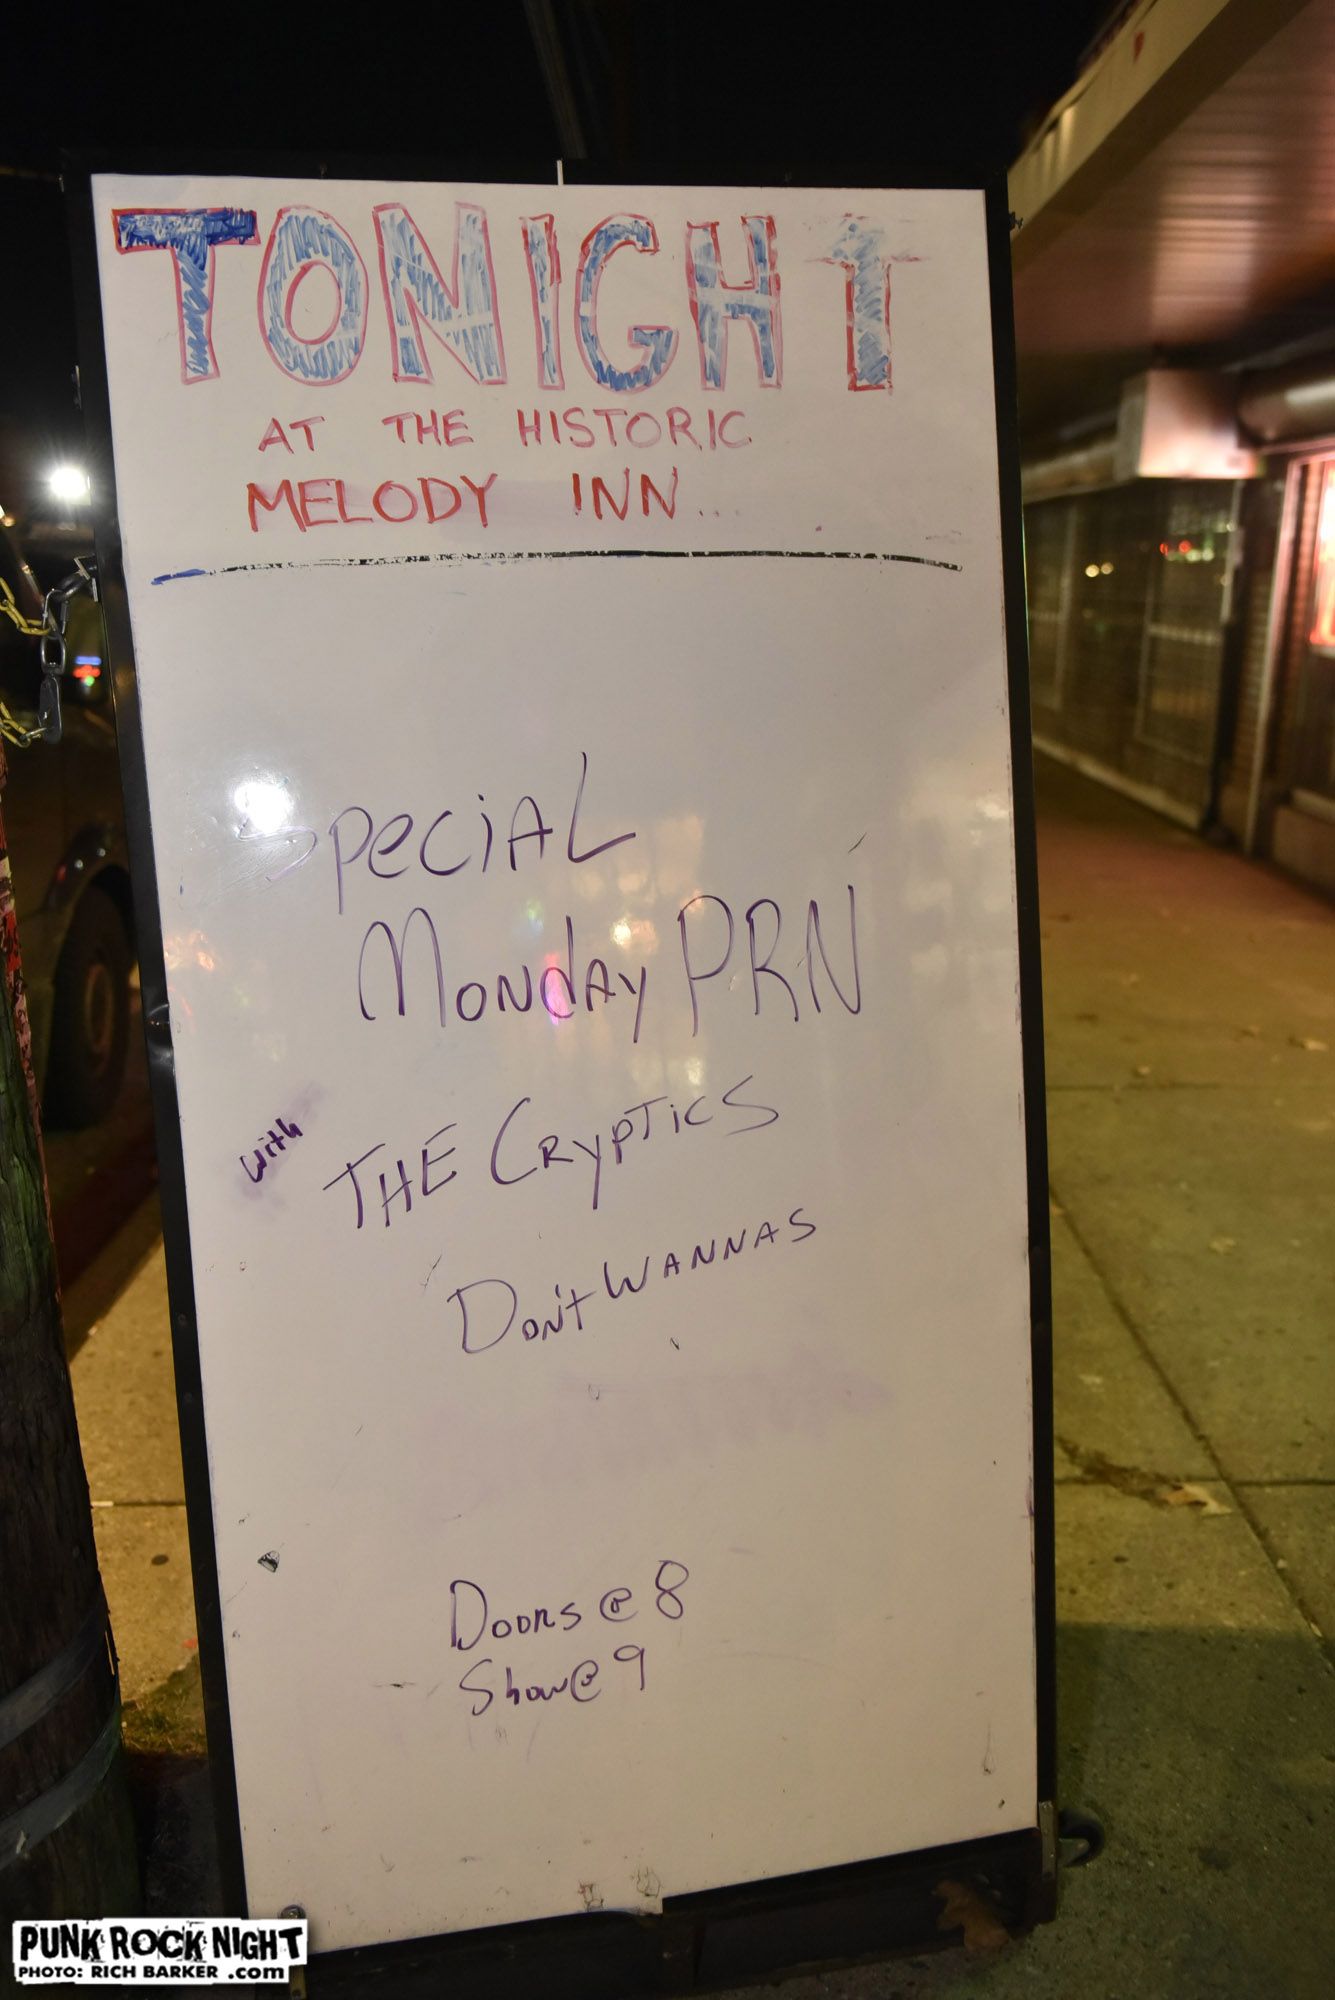 TONIGHT
AT THE HISTORIC
MELODY INN...
Special
Monday PRN
with THE CRYPTICS
Don't WANNAS
Doors @ 8
Show @ 9
PUNK ROCK NIGHT
PHOTO: RICH BARKER .com